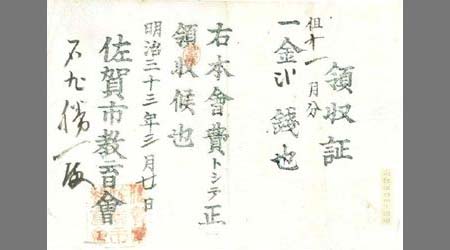 領収証
十一月分
一金 銭也
右本會費トシテ正
領収候也
明治三十三年三月廿日
佐賀市教育會
石丸勝一殿